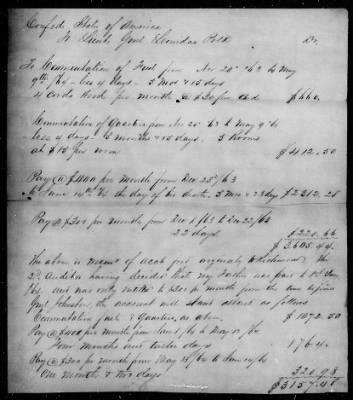 Confed. States of America
To Lieut. Genl Leonidas Polk Dr.
To Commutation of Fuel from Nov 20" '63 to May
9th /64 - less 4 days - 5 mos & 15 days
4 Cords Wood per month @ $30 per Cd. $660.
Commutation of Quarters from Nov 20" 63 to May 9" 64
- less 4 days - 5 months & 15 days. 5 Rooms
at $15 per room $412.50
Pay @ $400 per month from Dec 23d /63
to June 14th /64 the day of his death. 5 Mos & 23 days $2312.28
Pay @ $300 per month from Dec 1 /63 to Dec 22 /63
22 days $220.66
$3605.44
The above is amount of acct first originally
The
2d Auditor having decided that my Father was paid to
/64, and was only entitled to $300 per month from the time he joined
Genl Johnston, the account will stand as follows
Commutation fuel & Quarters, as above, $1072.50
Pay @ $400 per month from Jany 1 /64 to May 12 /64
Four months and twelve days 1764.
Pay @ $300 per month from May /64 to June 14 /64
One month & two days 320.98
$3157.48